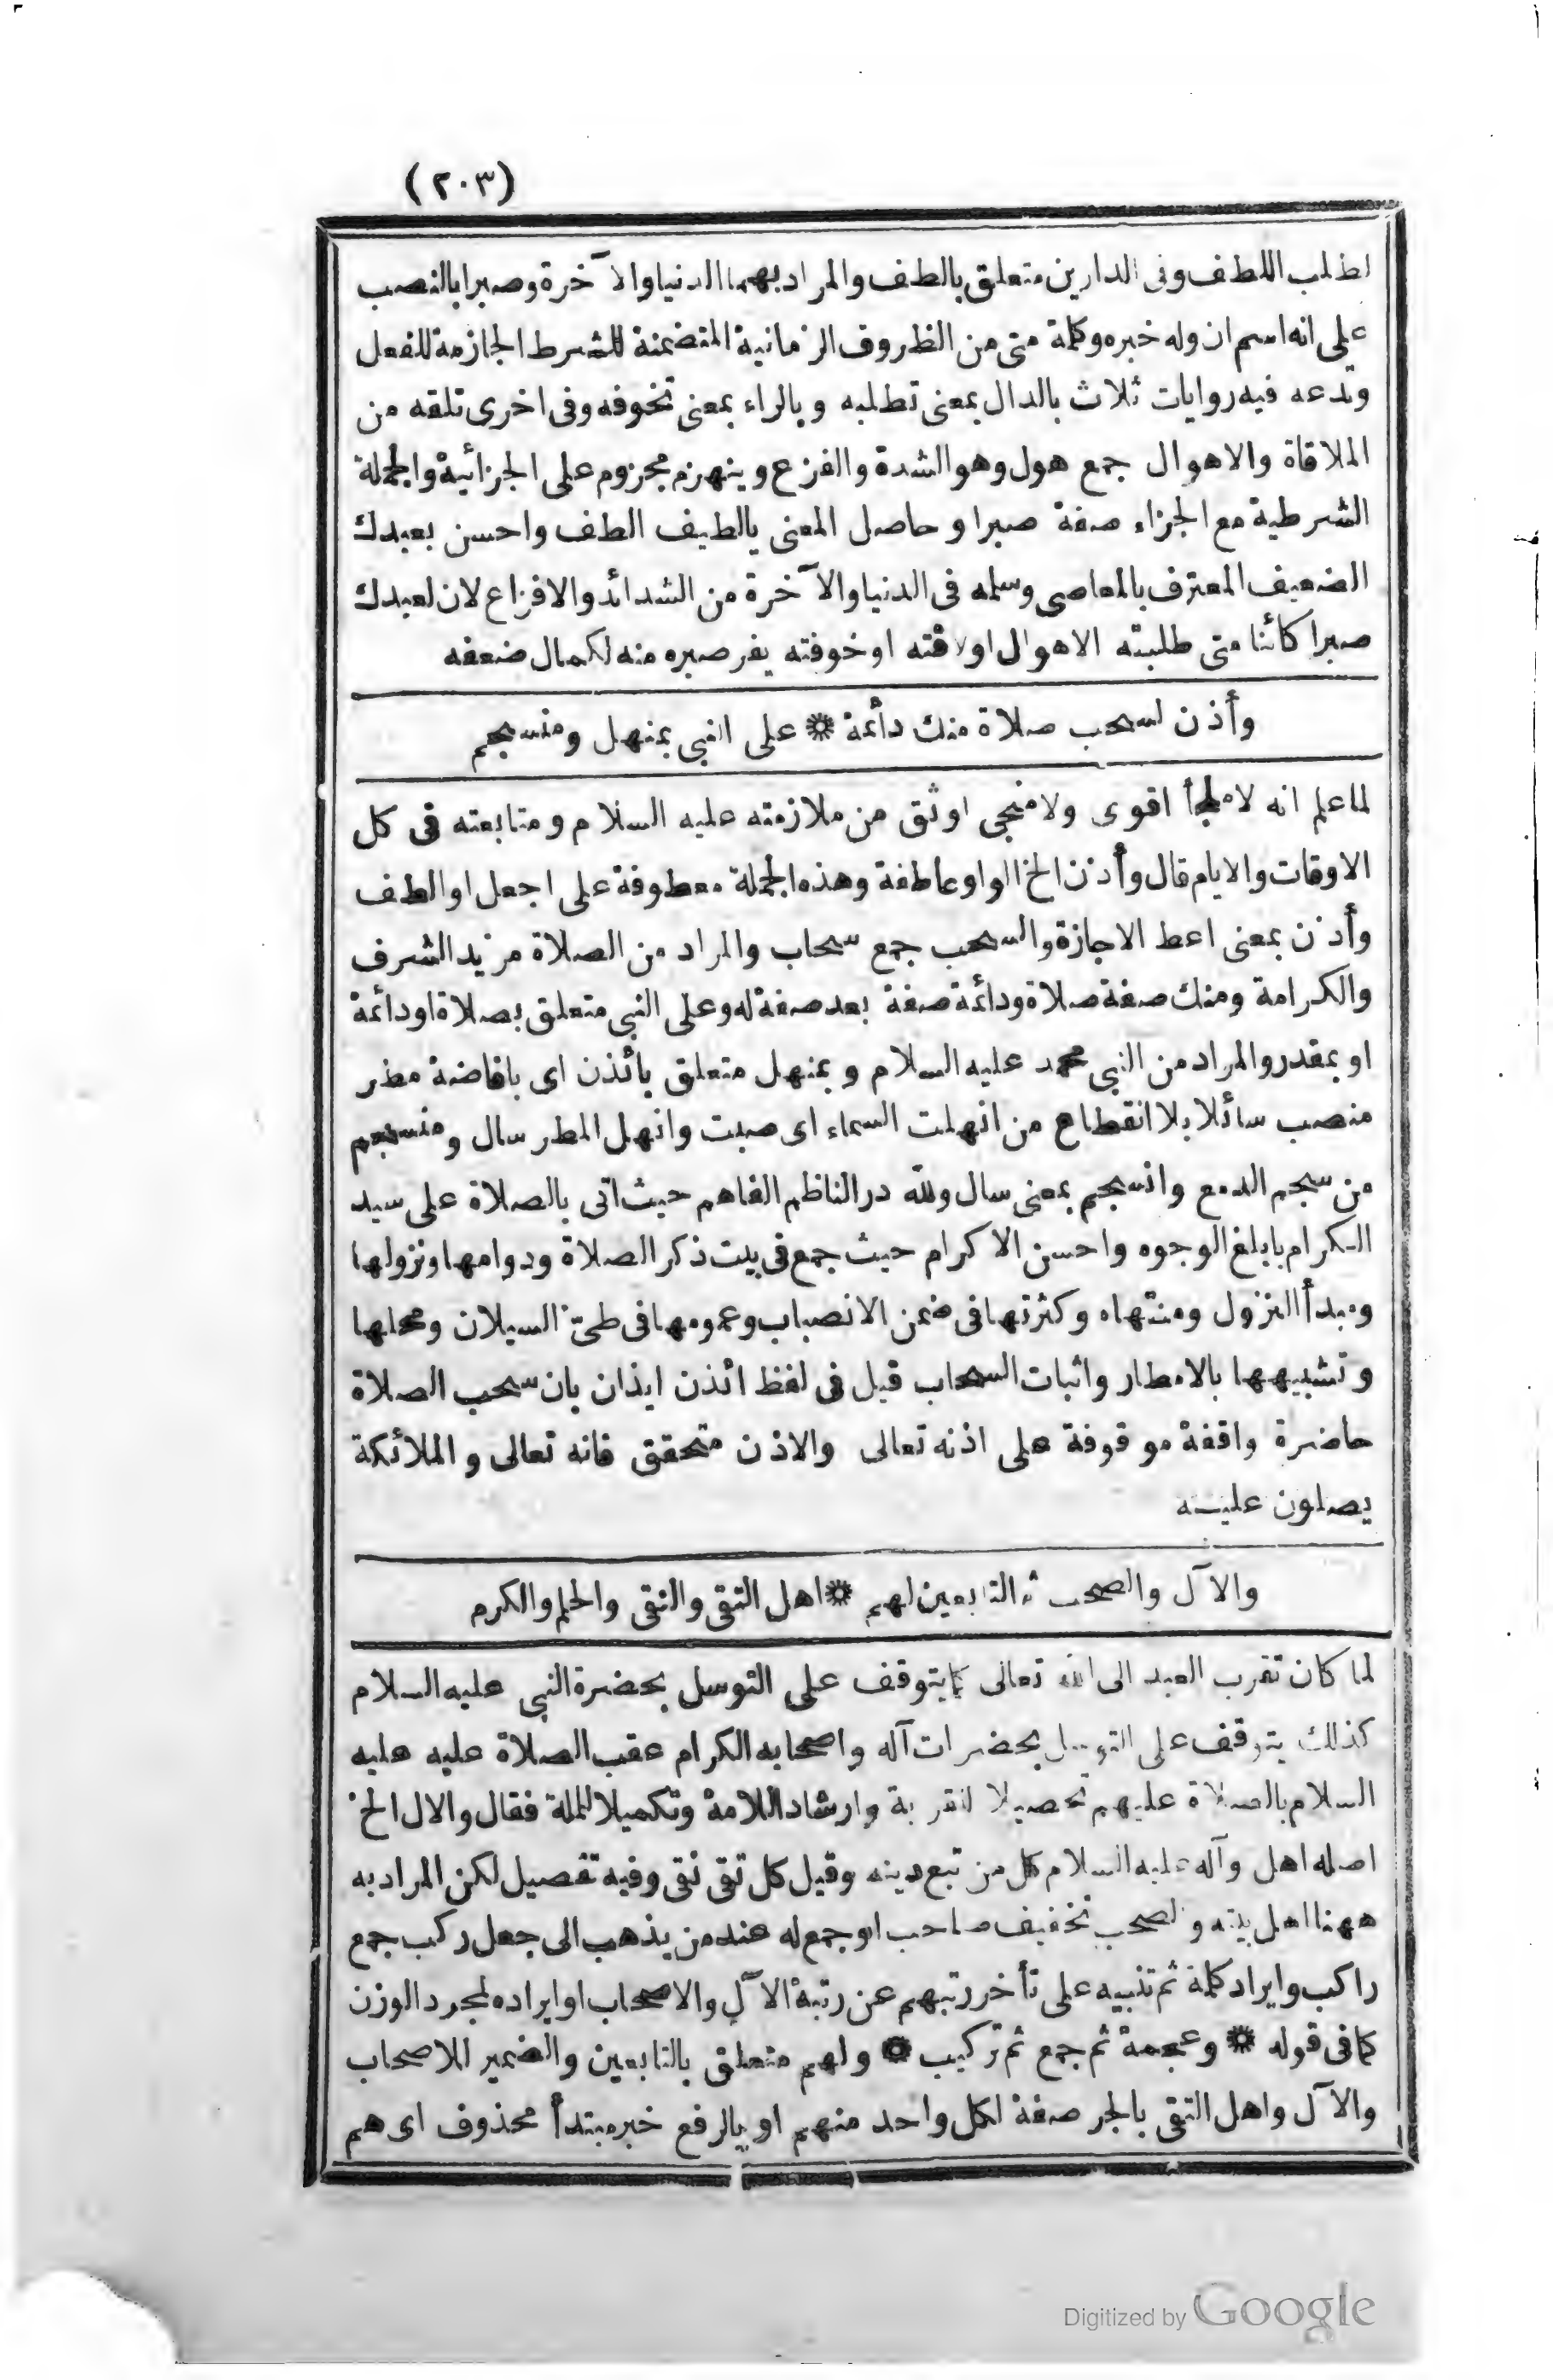 (٢٠٣)
لطلب اللطف وفى الدارين متعلق بالطف والمراد بهما الدنيا والآخرة وصبرا بالنصب
على انه اسم ان وله خبره وكلمة متى من الظروف الزمانية المتضمنة للشرط الجازمة للفعل
وتدعه فيه روايات ثلاث بالدال بمعنى تطلبه وبالراء بمعنى تخوفه وفى اخرى تلقه من
الملاقاة والاهوال جمع هول وهو الشدة والفزع وينهزم مجزوم على الجزائية والجملة
الشرطية مع الجزاء صفة صبرا وحاصل المعنى يالطيف الطف واحسن بعبدك
الضعيف المعترف بالمعاصى وسلمه فى الدنيا والآخرة من الشدائد والافزاع لان لعبدك
صبرا كائنا متى طلبته الاهوال اولاقته او خوفته يفر صبره منه لكمال ضعفه
وأذن لسحب صلاة منك دائمة ❁ على النبى بمنهل ومنسجم
لما علم انه لا ملجأ اقوى ولا منجى اوثق من ملازمته عليه السلام ومتابعته فى كل
الاوقات والايام قال وأذن الخ الواو عاطفة وهذه الجملة معطوفة على اجعل او الطف
وأذن بمعنى اعط الاجازة والسحب جمع سحاب والمراد من الصلاة مزيد الشرف
والكرامة ومنك صفة صلاة ودائمة صفة بعد صفة له وعلى النبى متعلق بصلاة او دائمة
او بمقدر والمراد من النبى محمد عليه السلام وبمنهل متعلق بائذن اى بافاضة مطر
منصب سائلا بلا انقطاع من انهلت السماء اى صبت وانهل المطر سال ومنسجم
من سجم الدمع وانسجم بمعنى سال ولله در الناظم الفاهم حيث اتى بالصلاة على سيد
الكرام بابلغ الوجوه واحسن الاكرام حيث جمع فى بيت ذكر الصلاة ودوامها ونزولها
ومبدأ النزول ومنتهاه وكثرتها فى ضمن الانصباب وعمومها فى طىّ السيلان ومحلها
وتشبيهها بالامطار واثبات السحاب قيل فى لفظ ائذن ايذان بان سحب الصلاة
حاضرة واقفة موقوفة على اذنه تعالى والاذن متحقق فانه تعالى والملائكة
يصلون عليه
والآل والصحب ثم التابعين لهم ❁ اهل التقى والنقى والحلم والكرم
لما كان تقرب العبد الى الله تعالى كما يتوقف على التوسل بحضرة النبى عليه السلام
كذلك يتوقف على التوسل بحضرات آله واصحابه الكرام عقب الصلاة عليه عليه
السلام بالصلاة عليهم تحصيلا للقربة وارشادا للامة وتكميلا للملة فقال والال الخ
اصله اهل وآله عليه السلام كل من تبع دينه وقيل كل تقى نقى وفيه تفصيل لكن المراد به
ههنا اهل بيته والصحب تخفيف صاحب او جمع له عند من يذهب الى جعل ركب جمع
راكب وايراد كلمة ثم تنبيه على تأخر رتبهم عن رتبة الآل والاصحاب او ايراده لمجرد الوزن
كما فى قوله ❁ وعجمة ثم جمع ثم تركيب ❁ ولهم متعلق بالتابعين والضمير للاصحاب
والآل واهل التقى بالجر صفة لكل واحد منهم او بالرفع خبر مبتدأ محذوف اى هم
Digitized by Google